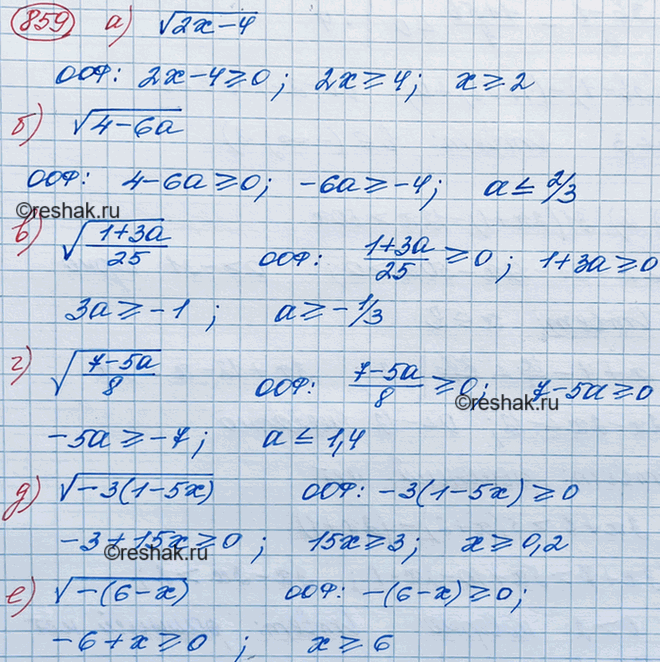 859 а) √(2x-4)
ООФ: 2x-4≥0; 2x≥4; x≥2
б) √(4-6a)
ООФ: 4-6a≥0; -6a≥-4; a≤2/3
©reshak.ru
в) √((1+3a)/25) ООФ: (1+3a)/25≥0; 1+3a≥0
3a≥-1; a≥-1/3
г) √((7-5a)/8) ООФ: (7-5a)/8≥0; 7-5a≥0
©reshak.ru
-5a≥-7; a≤1,4
д) √(-3(1-5x)) ООФ: -3(1-5x)≥0
-3+15x≥0; 15x≥3; x≥0,2
©reshak.ru
е) √(-(6-x)) ООФ: -(6-x)≥0;
-6+x≥0; x≥6